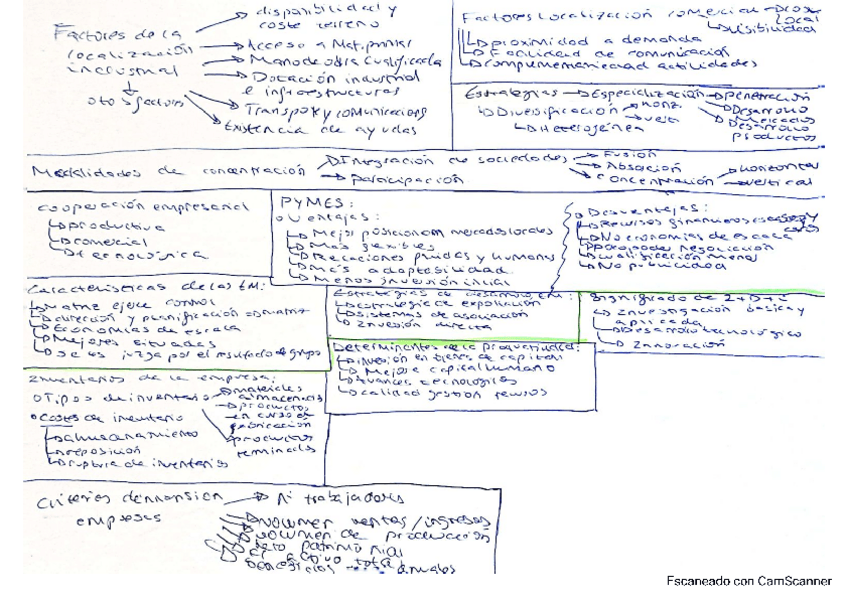 Factores de la
localización
industrial
otros factores
disponibilidad y
coste terreno
Acceso a Mat. primas
Mano de obra cualificada
Dotación industrial
e infraestructuras
Transporte y comunicaciones
Existencia de ayudas
Factores Localización comercial
local
visibilidad
proximidad a demanda
Facilidad de comunicación
complementariedad actividades
Estrategias → Especialización → penetración
Desarrollo
Mercados
Desarrollo
productos
Diversificación → horiz.
→ vert
Heterogénea
Modalidades de concentración
Integración de sociedades → Fusión
Absoción
concentración → horizontal
→ vertical
participación
cooperación empresarial
productiva
comercial
tecnológica
PYMES:
o ventajas:
Mejor posicionam mercados locales
Más flexibles
Relaciones fluidas y humanas
Más adaptabilidad
Menos inversión inicial
o Desventajas:
Recursos financieros escasos y
No economías de escala
poco poder negociación
cualificación menos
No publicidad
Características de las EM:
Matriz ejerce control
dirección y planificación
Economías de escala
Mejores situadas
se les juzga por el resultado de grupo
Estrategias de desarrollo EM:
Estrategia de exportación
sistemas de asociación
Inversión directa
Significado de I+D+i
Investigación básica y
aplicada
Desarrollo tecnológico
Innovación
Determinantes de la productividad:
inversión en bienes de capital
Mejora capital humano
Avances tecnológicos
calidad gestión recursos
Inventarios de la empresa:
o Tipos de inventario
materiales
almacenados
productos
en curso de
fabricación
productos
terminados
o Costes de inventario
almacenamiento
reposición
ruptura de inventarios
Criterios dimension
empresas
Nº trabajadores
volumen ventas/ingresos
volumen de producción
patrimonial
activo total
beneficios anuales
Escaneado con CamScanner